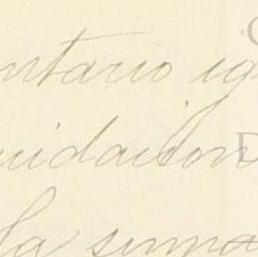 ntario ig
uidacion
la suma